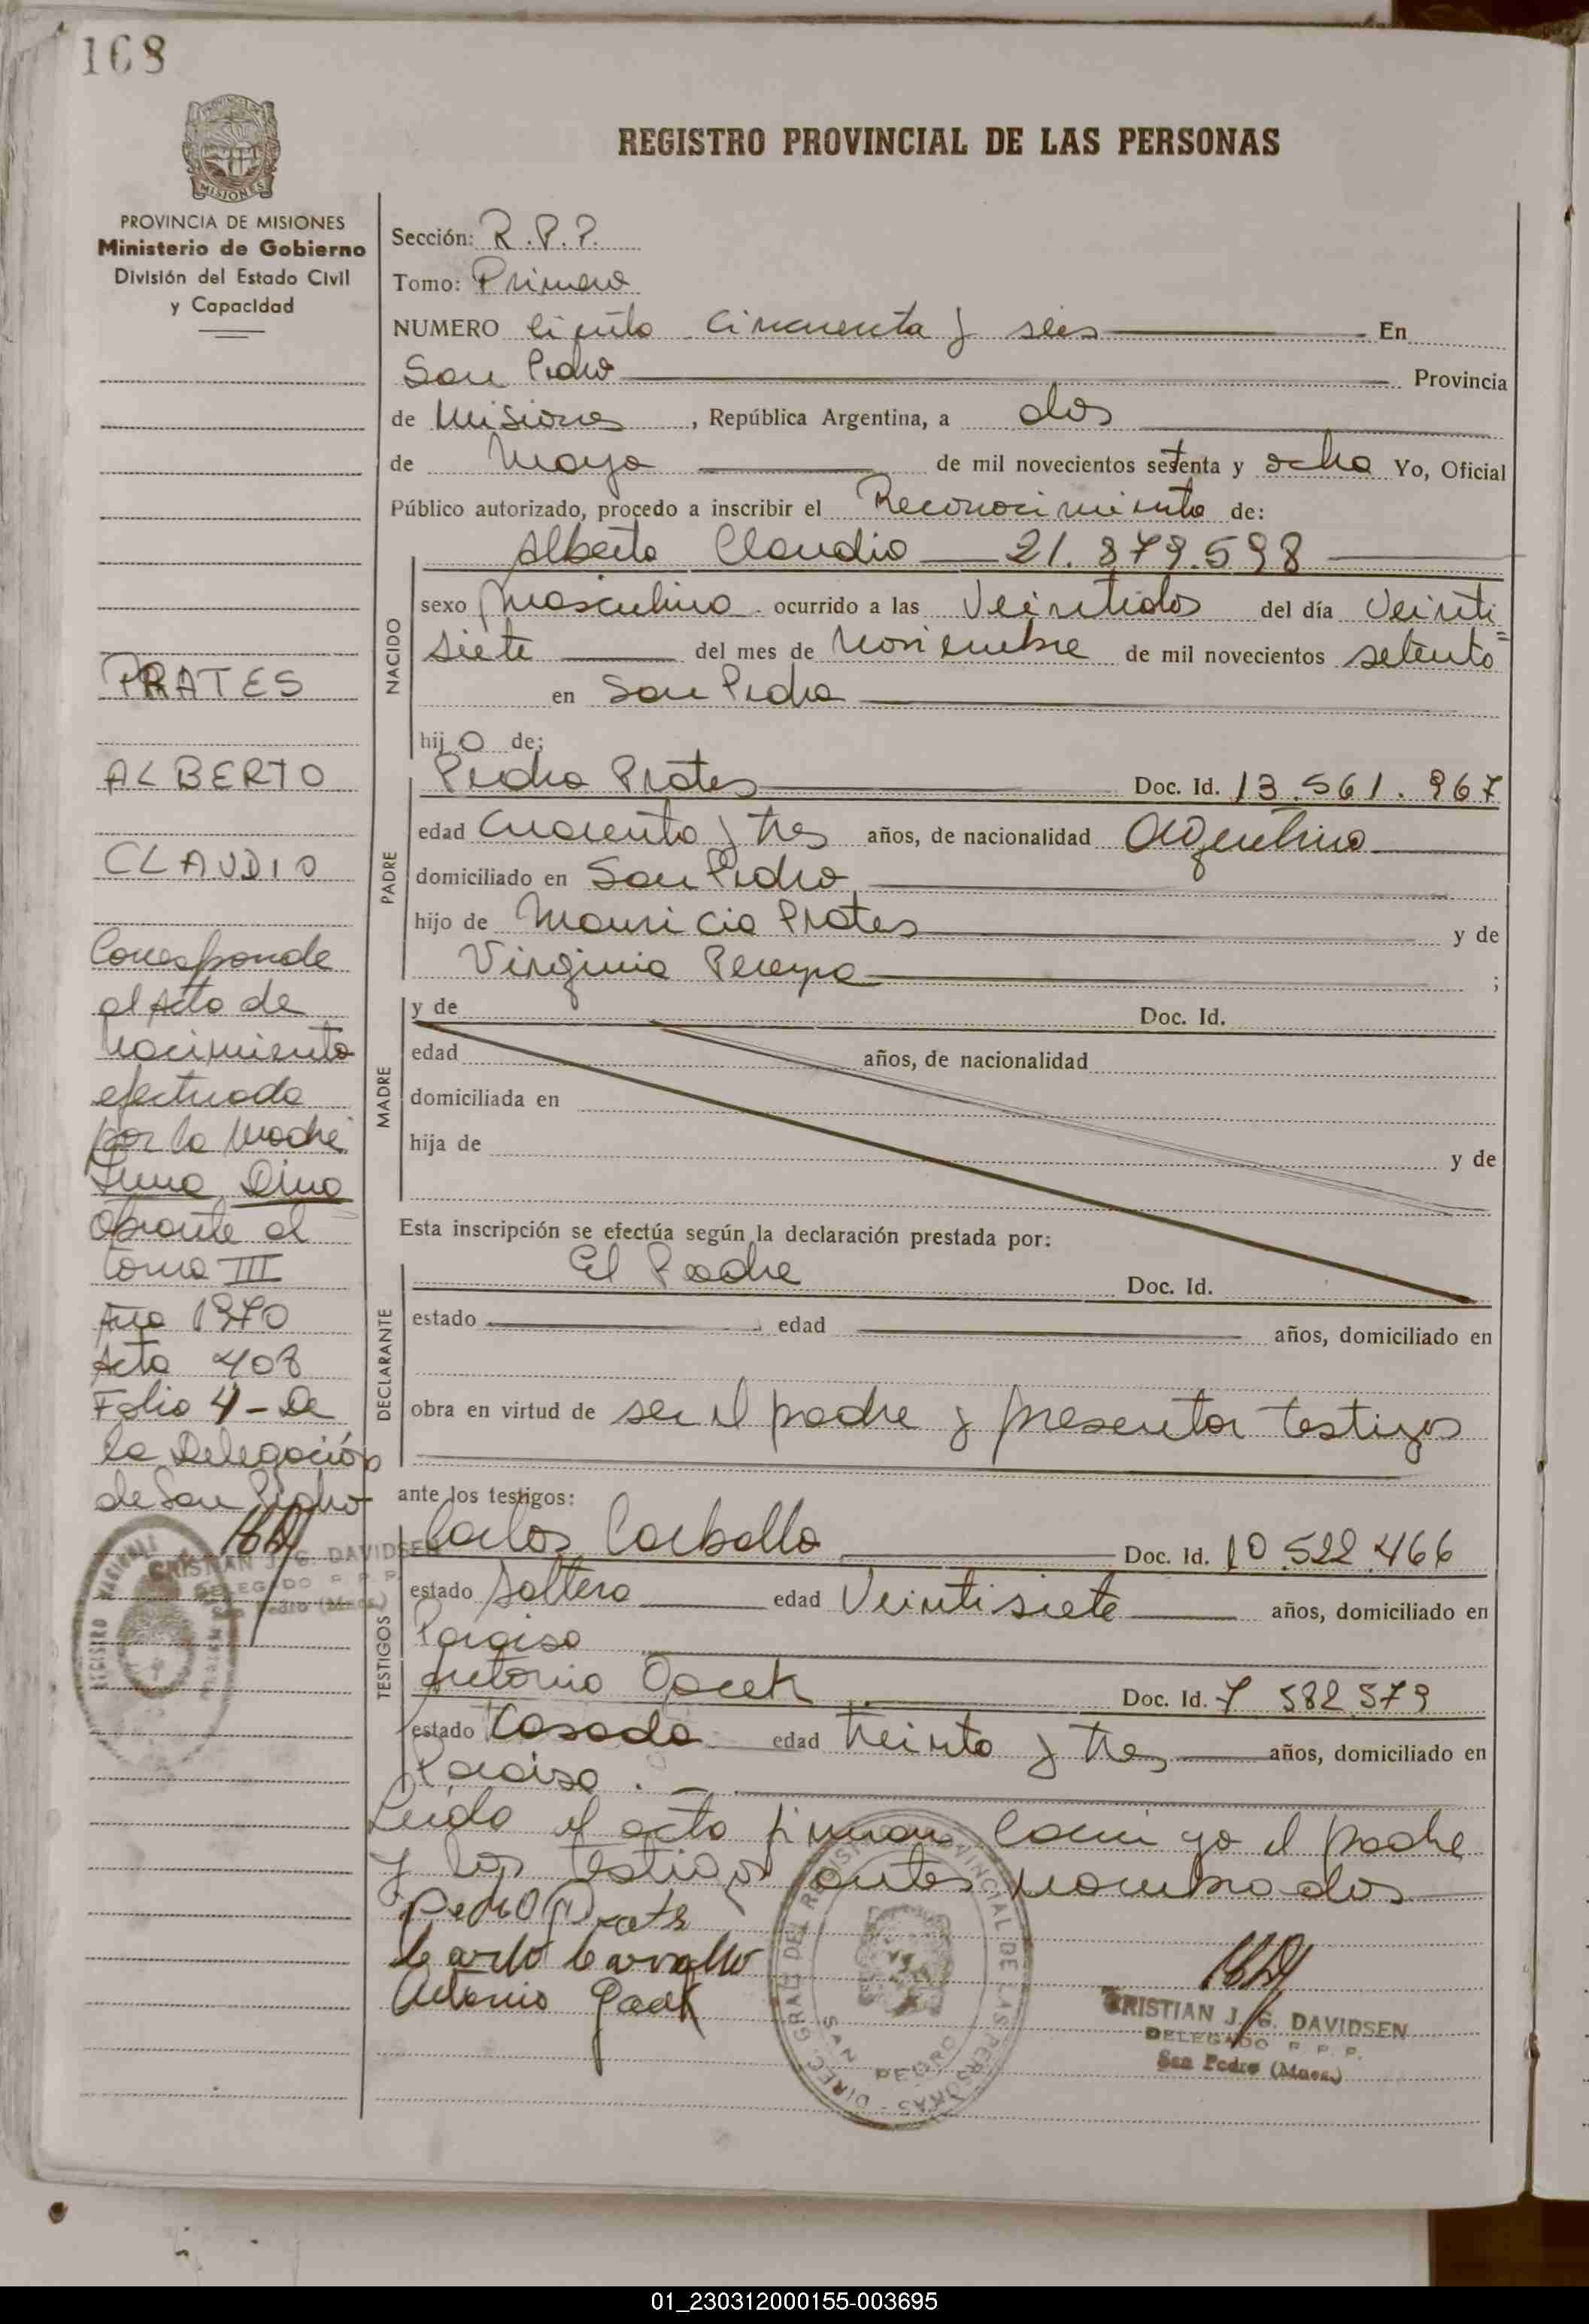 168
REGISTRO PROVINCIAL DE LAS PERSONAS
MISIONES
PROVINCIA DE MISIONES
Ministerio de Gobierno
División del Estado Civil
y Capacidad
Sección: R.P.P.
Tomo: Primero
NUMERO Ciento Cincuenta y seis En
San Pedro Provincia
de Misiones, República Argentina, a dos
de Mayo de mil novecientos setenta y ocho Yo, Oficial
Público autorizado, procedo a inscribir el Reconocimiento de:
NACIDO
Alberto Claudio — 21.879.598
sexo Masculino ocurrido a las Veintidos del día Veinti=
siete del mes de Noviembre de mil novecientos setenta
en San Pedro
hijo de:
PADRE
Pedro Prates Doc. Id. 13.561.967
edad Cuarenta y tres años, de nacionalidad Argentino
domiciliado en San Pedro
hijo de Mauricio Prates y de
Virginia Pereyra ;
MADRE
y de Doc. Id.
edad años, de nacionalidad
domiciliada en
hija de y de
Esta inscripción se efectúa según la declaración prestada por:
DECLARANTE
El Padre Doc. Id.
estado edad años, domiciliado en
obra en virtud de ser el padre y presentar testigos
ante los testigos:
TESTIGOS
Carlos Carballo Doc. Id. 10.522.466
estado Soltero edad Veintisiete años, domiciliado en
Paraiso
Antonio Doc. Id. 7 582 579
estado Casado edad treinta y tres años, domiciliado en
Paraiso . —
Leida el acta firman Conmigo el padre
y los testigos antes nombrados
Pedro Prates
Antonio
DIREC. GRAL. DEL REGISTRO PROVINCIAL DE LAS PERSONAS
SAN PEDRO
CRISTIAN J. G. DAVIDSEN
DELEGADO R. P. P.
San Pedro (Mnes.)
PRATES
ALBERTO
CLAUDIO
Corresponde
al Acta de
Nacimiento
efectuada
por la Madre
Obrante al
Tomo III
Año 1970
Acta 408
Folio 4 - De
la Delegación
de San Pedro
CRISTIAN J. G. DAVIDSEN
DELEGADO R. P. P.
San Pedro (Mnes.)
01_230312000155-003695